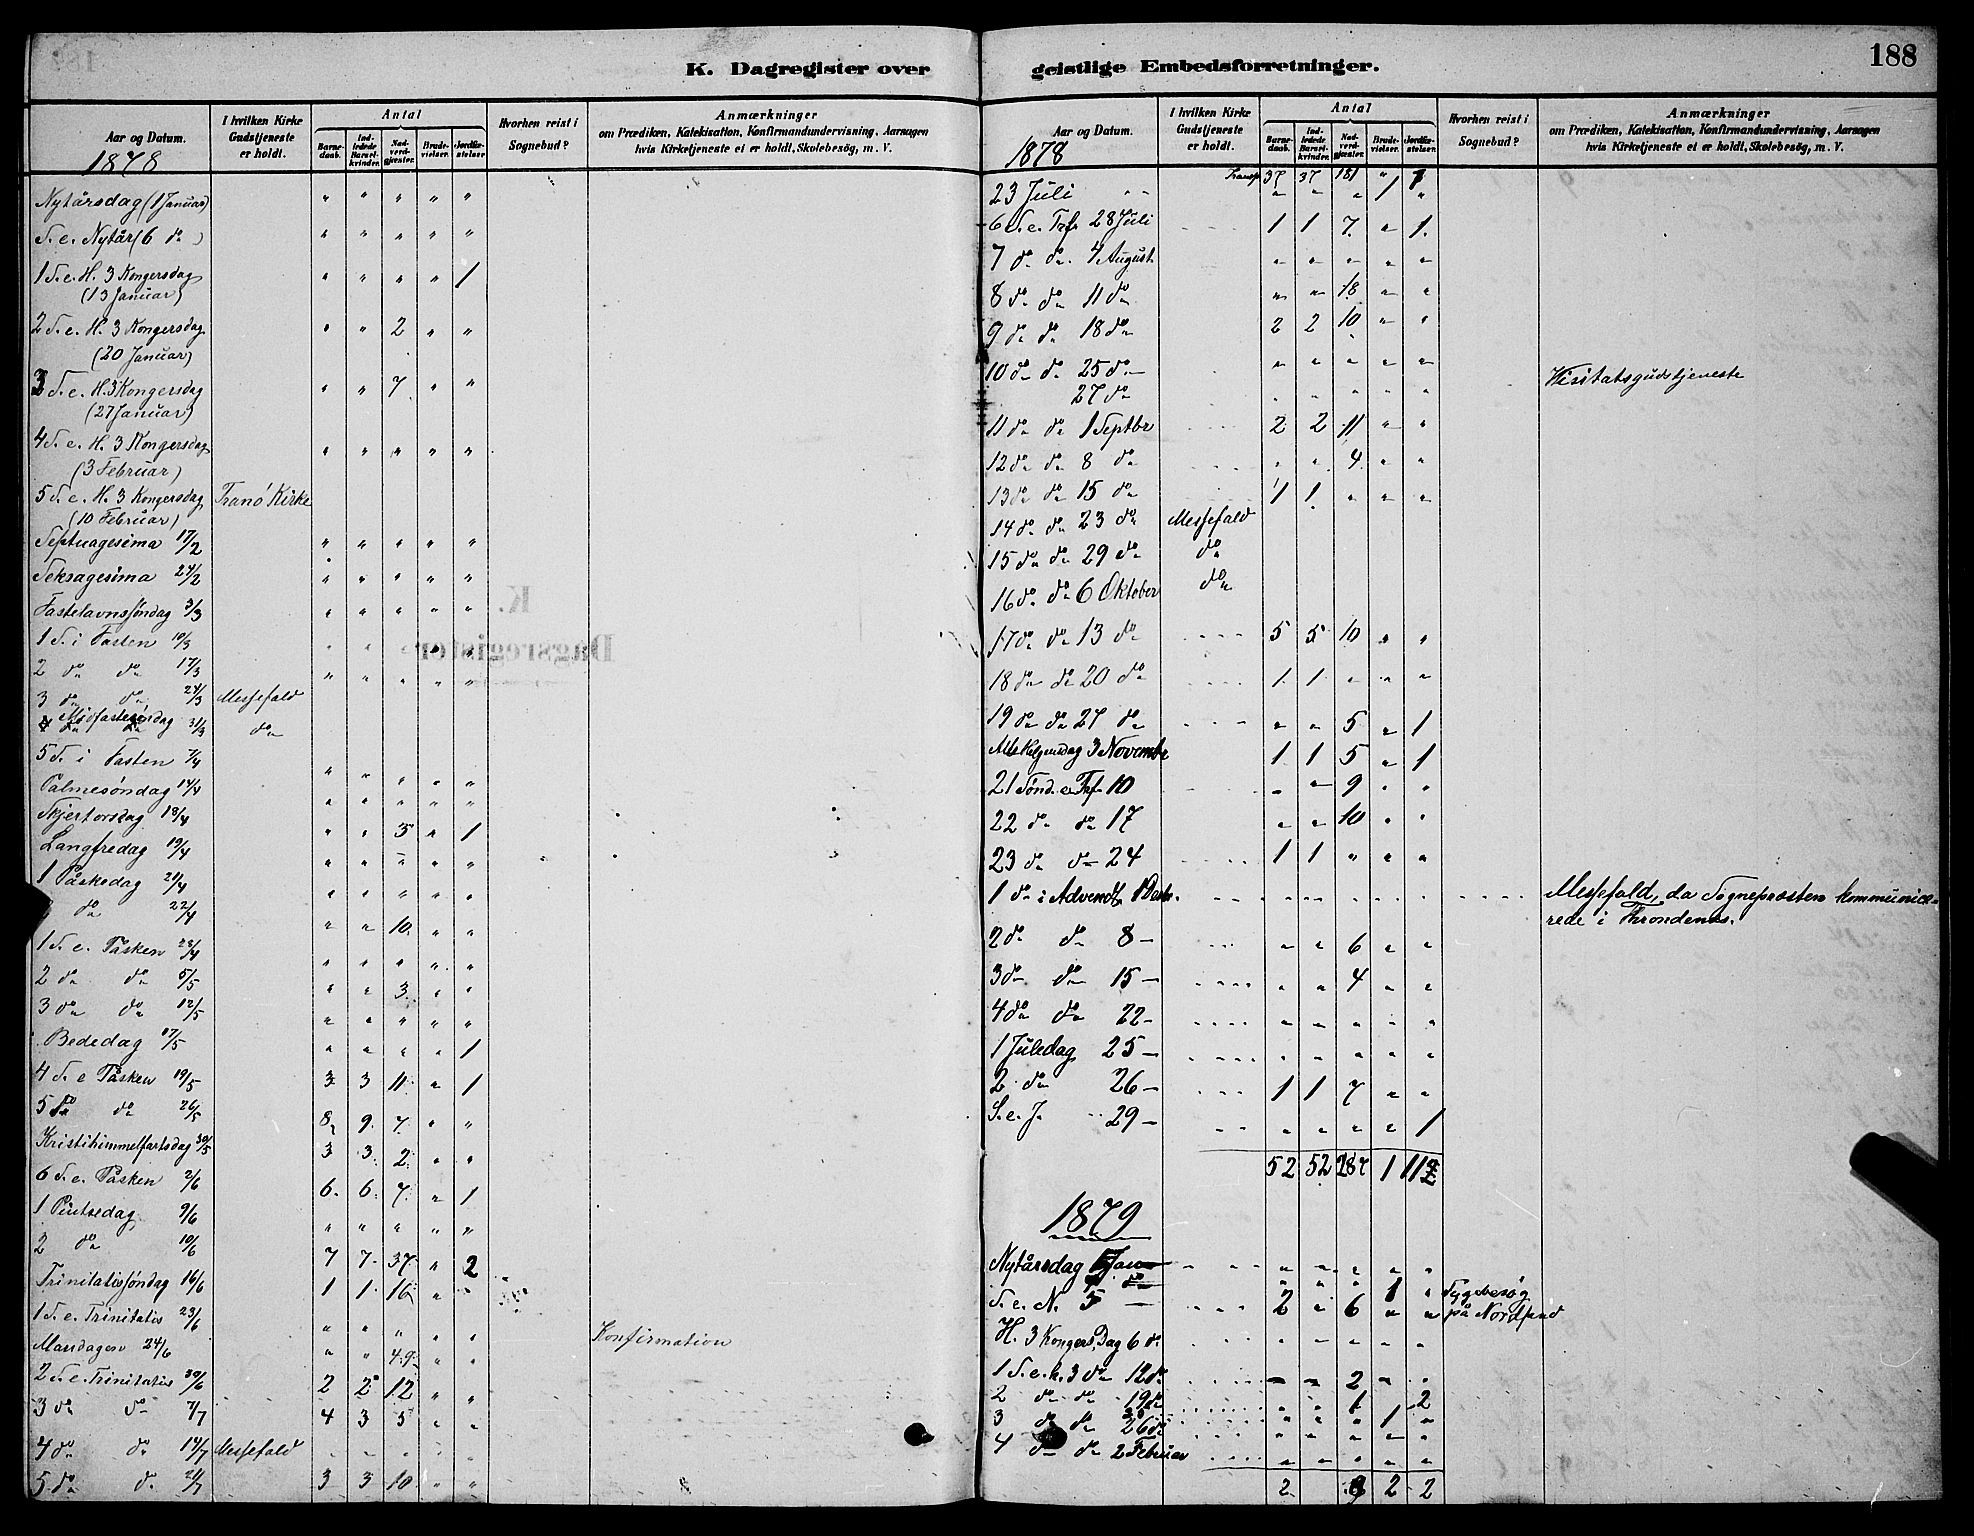 188
K. Dagregister over geistlige Embedsforretninger.
Aar og Datum. I hvilken Kirke Gudstjeneste er holdt. Antal Barnedaab. Indledede Barselkvinder. Nadverdgjester. Brudevielser. Jordfæstelser Hvorhen reist i Sognebud? Anmærkninger om Prædiken, Katekisation, Konfirmandundervisning, Aarsagen hvis Kirketjeneste ei er holdt, Skolebesög, m. V.
1878
Nytårsdag (1 Januar) " " " " "
S. e. Nytår (6 do) " " " " "
1 S. e. H. 3 Kongersdag " " " " 1
(13 Januar)
2 S. e. H. 3 Kongersdag " " 2 " "
(20 Januar)
3 S. e. H. 3 Kongersdag " " 7 " "
(27 Januar)
4 S. e. H. 3 Kongersdag " " " " "
(3 Februar)
5 S. e. H. 3 Kongersdag Tranö Kirke
(10 Februar)
Septuagesima 17/2 " " " " "
Seksagesima 24/2 " " " " "
Fastelavnssöndag 3/3 " " " " "
1 S. i Fasten 10/3 " " " " "
2 do do 17/3 " " " " "
3 do do 24/3 Messefald
Midfastesöndag 31/3 do
5 S. i Fasten 7/4 " " " " "
Palmesöndag 14/4 " " " " "
Skjertorsdag 18/4 " " 5 " 1
Langfredag 19/4 " " " " "
1 Påskedag 21/4 " " " " "
do 22/4 " " 10 " "
1 S. e. Påsken 28/4 " " " " "
2 do do 5/5 " " 3 " "
3 do do 12/5 " " " " "
Bededag 17/5 " " " " 1
4 S. e Påsken 19/5 3 3 11 " 1
5 do do 26/5 8 9 7 " "
Kristihimmelfartsdag 30/5 3 3 2 " "
6 S. e. Påsken 2/6 6 6 7 " 1
1 Pintsedag 9/6 " " " " "
2 do 10/6 7 7 37 " 2
Trinitatissöndag 16/6 1 1 16 " "
1 S. e. Trinitatis 23/6 " " " " "
Mandagen 24/6 " " 49 " " Konfirmation
2 S. e. Trinitatis 30/6 2 2 12 " "
3 do do 7/7 4 3 5 " "
4 do do 14/7 Messefald
5 do do 21/7 3 3 10 " "
Aar og Datum. I hvilken Kirke Gudstjeneste er holdt. Antal Barnedaab. Indledede Barselkvinder. Nadverdgjester. Brudevielser. Jordfæstelser. Hvorhen reist i Sognebud? Anmærkninger om Prædiken, Katekisation, Konfirmandundervisning, Aarsagen hvis Kirketjeneste ei er holdt, Skolebesög, m. V.
1878
Transp 37 37 181 "
23 Juli " " " 1 "
6 S. e. Tref. 28 Juli 1 1 7 " 1
7 do do 4 August " " " " "
8 do do 11 do " " 18 " "
9 do do 18 do 2 2 10 " "
10 do do 25 do " " " " "
27 do " " " " " Visitatsgudstjeneste
11 do do 1 Septbr 2 2 11 " "
12 do do 8 do " " 4 " "
13 do do 15 do 1 1 " " "
14 do do 23 do Messefald
15 do do 29 do do
16 do do 6 Oktober do
17 do do 13 do 5 5 10 " "
18 do do 20 do 1 1 " " "
19 do do 27 do " " 5 " 1
Allehelgensdag 3 Novembr 1 1 5 " 1
21 Sönd. e. Tref. 10 " " 9 " "
22 do do 17 " " 10 " "
23 do do 24 1 1 " " "
1 do i Advendt 1 Decbr. Messefald, da Sognepræsten kommunice-
rede i Throndenes.
2 do do 8 " " 6 " "
3 do do 15 " " 4 " "
4 do do 22 " " " " "
1 Juledag 25 " " " " "
2 do 26 1 1 7 " "
S. e. J. 29 " " " " 1
52 52 287 1
1879
Nytårsdag 1 Jan " " " " "
do " " " 1 " Sygebesög
S. e. N. 5 2 " 6 " " på Nordfund
H. 3 Kongers Dag 6 do " " " " "
1 S. e. h. 3 do 12 do " " 2 " "
2 do do 19 do " " 1 " 2
" " " 1 "
3 do do 26 do " " " " "
4 do do 2 Februar " " " " "
2 9 2 2